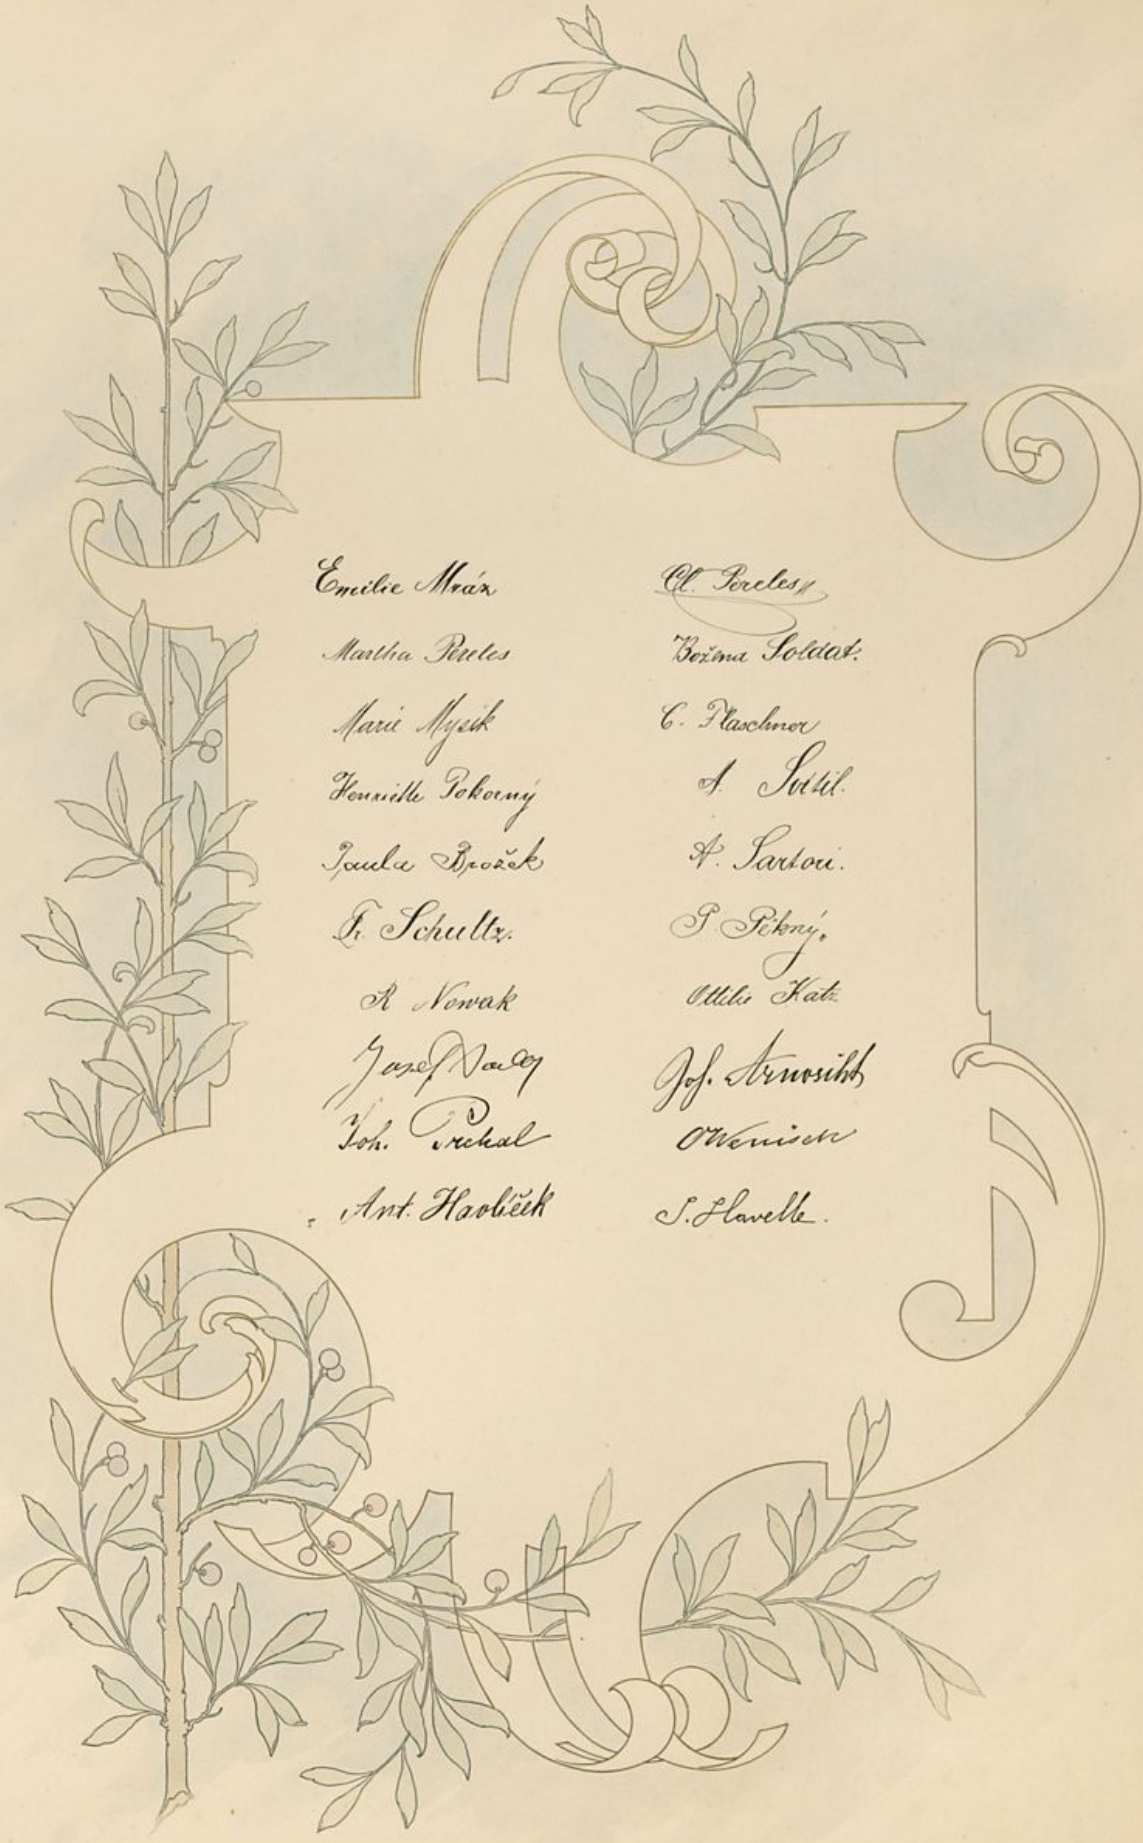 Emilie Mráz
Martha Pereles
Marie Mysik
Henriette Pokorný
Paula Brožek
Fr. Schultz.
R Nowak
Josef
Joh. Prchal
Ant. Havlíček
Cl. Pereles
Božena Soldat.
C. Flaschner
A. Svítil.
A. Sartori.
P. Pěkný.
Ottilie Katz
Jos.
O Wenisch